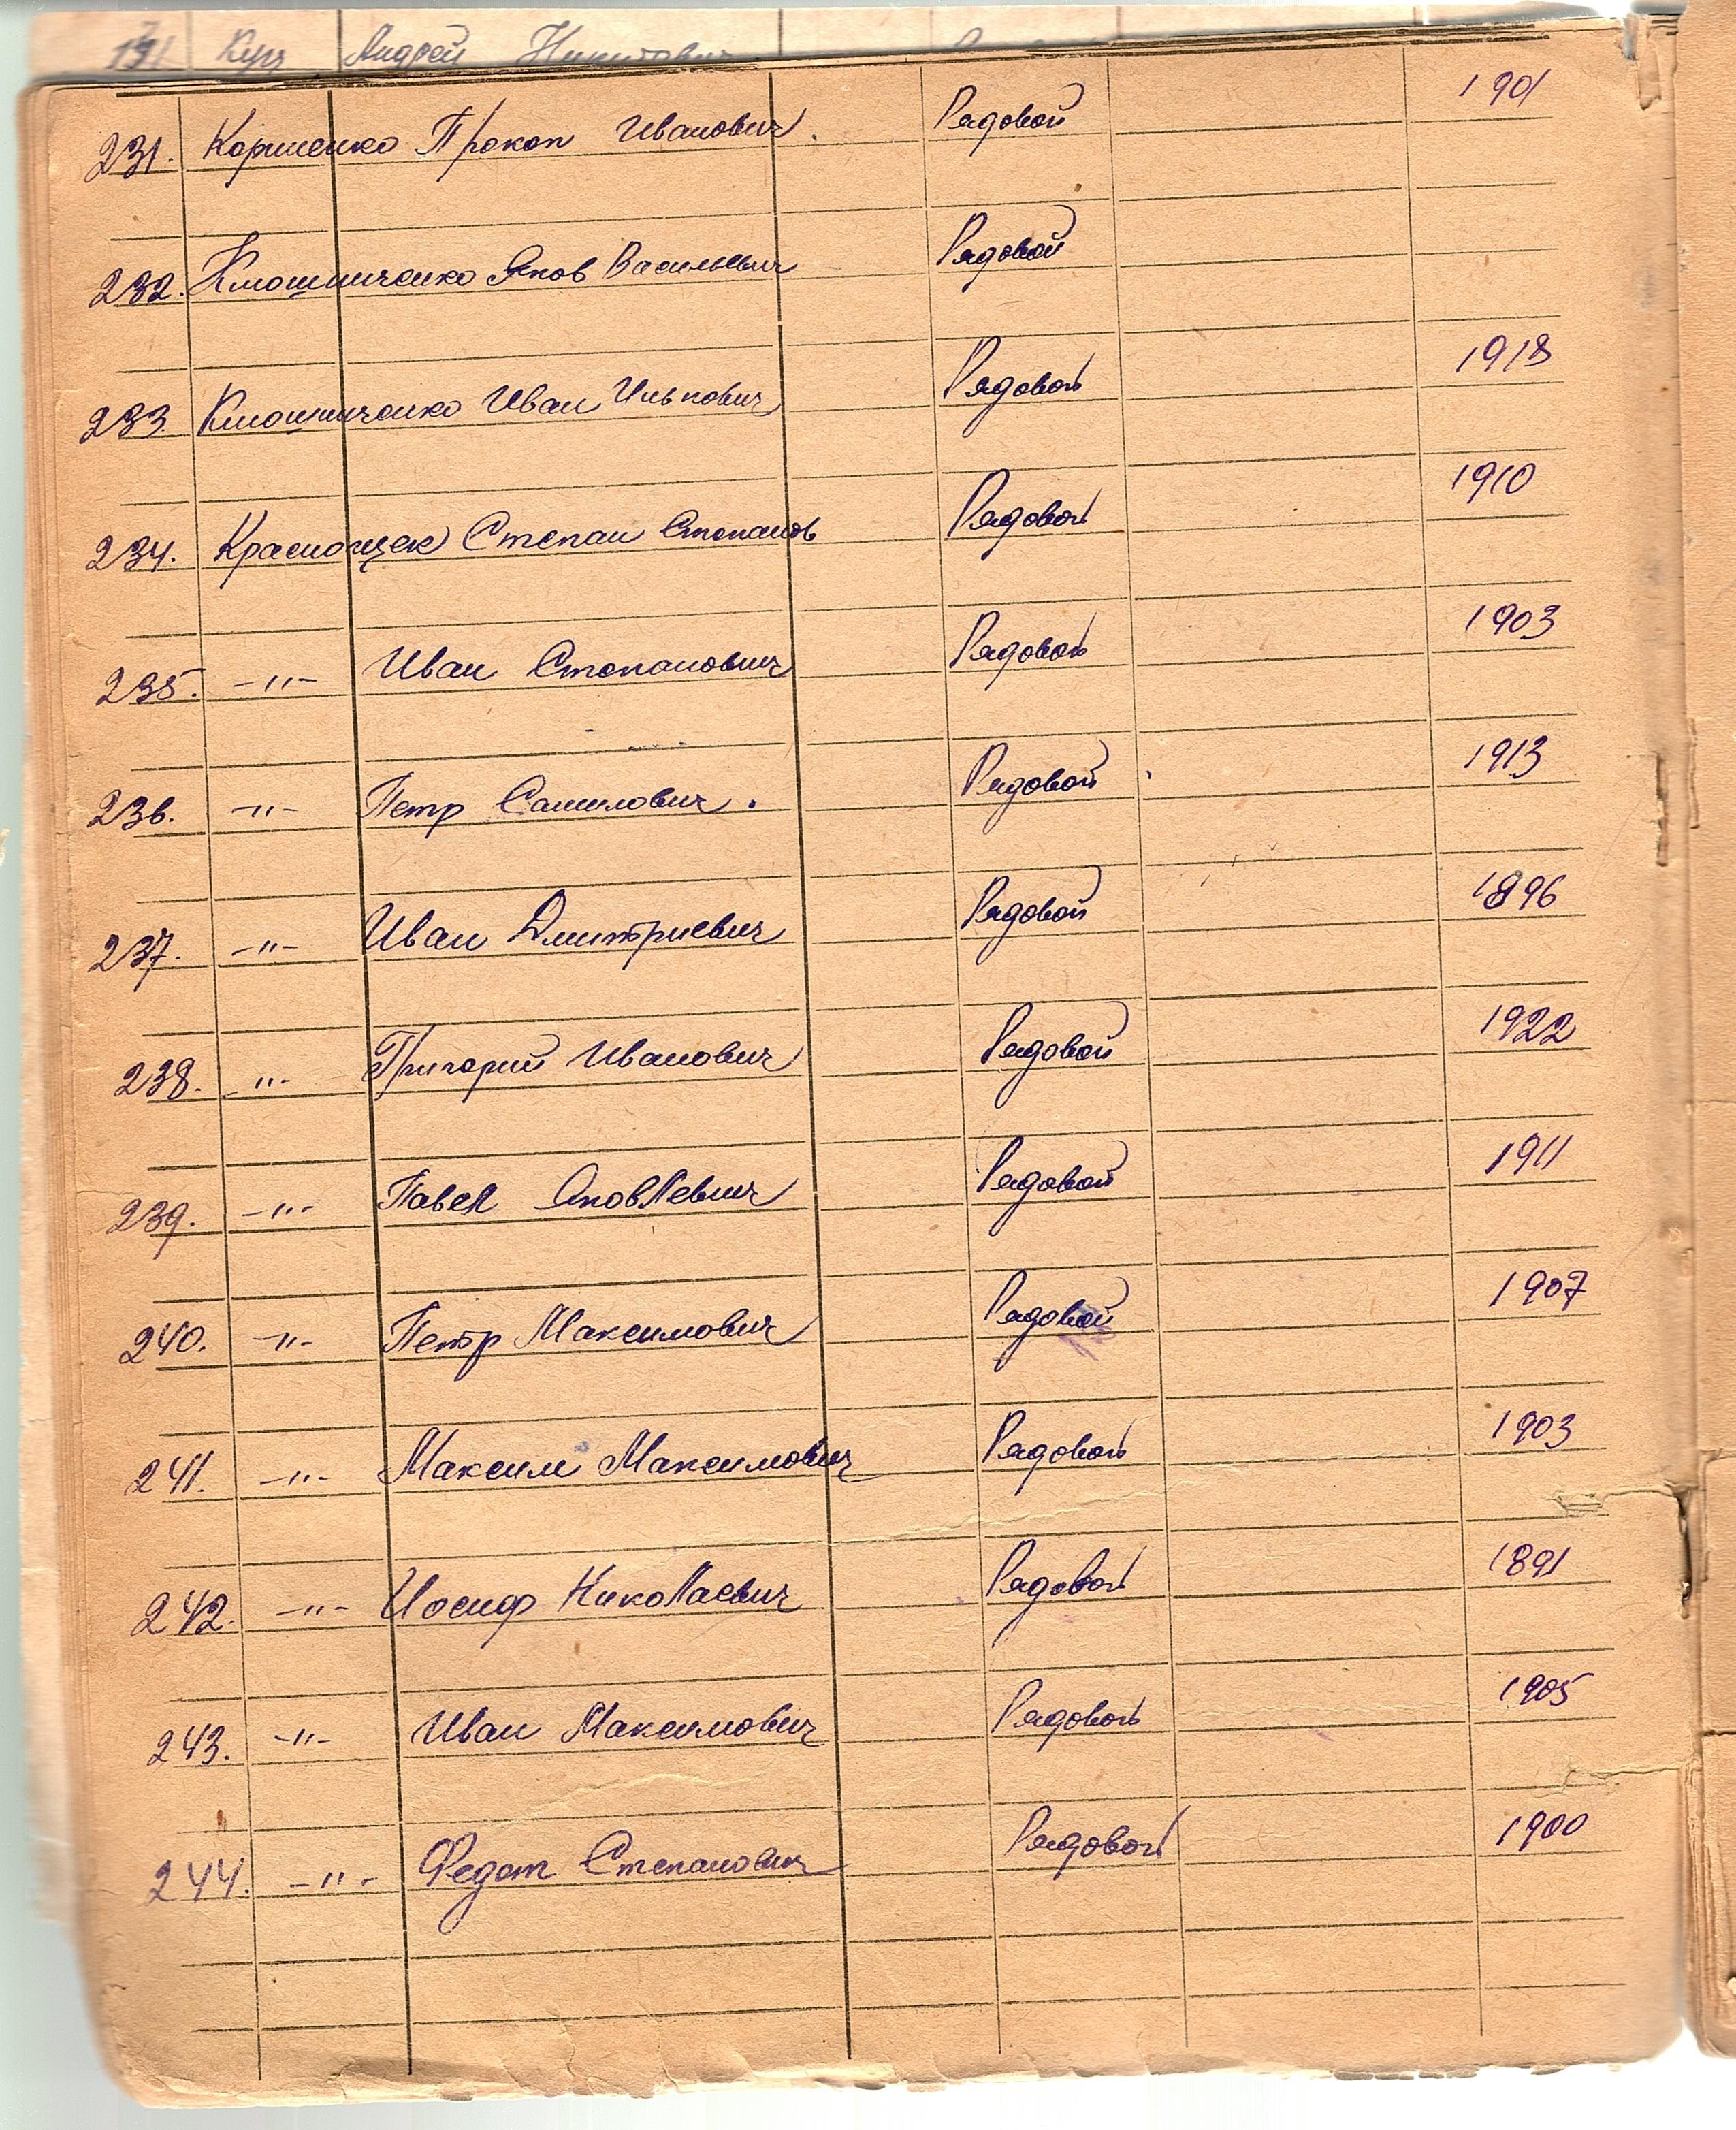 191 Кущ Андрей Никитович
231. Коршенко Прокоп Иванович. Рядовой 1901
232. Клюшниченко Яков Васильевич Рядовой
233. Клюшниченко Иван Илькович Рядовой 1918
234. Краснощек Степан Степанов Рядовой 1910
235. -"- Иван Степанович Рядовой 1903
236. -"- Петр Самилович. Рядовой 1913
237. -"- Иван Дмитриевич Рядовой 1896
238. -"- Григорий Иванович Рядовой 1922
239. -"- Павел Яковлевич Рядовой 1911
240. -"- Петр Максимович Рядовой 1907
241. -"- Максим Максимович Рядовой 1903
242. -"- Иосиф Николаевич Рядовой 1891
243. -"- Иван Максимович Рядовой 1905
244. -"- Федот Степанович Рядовой 1900